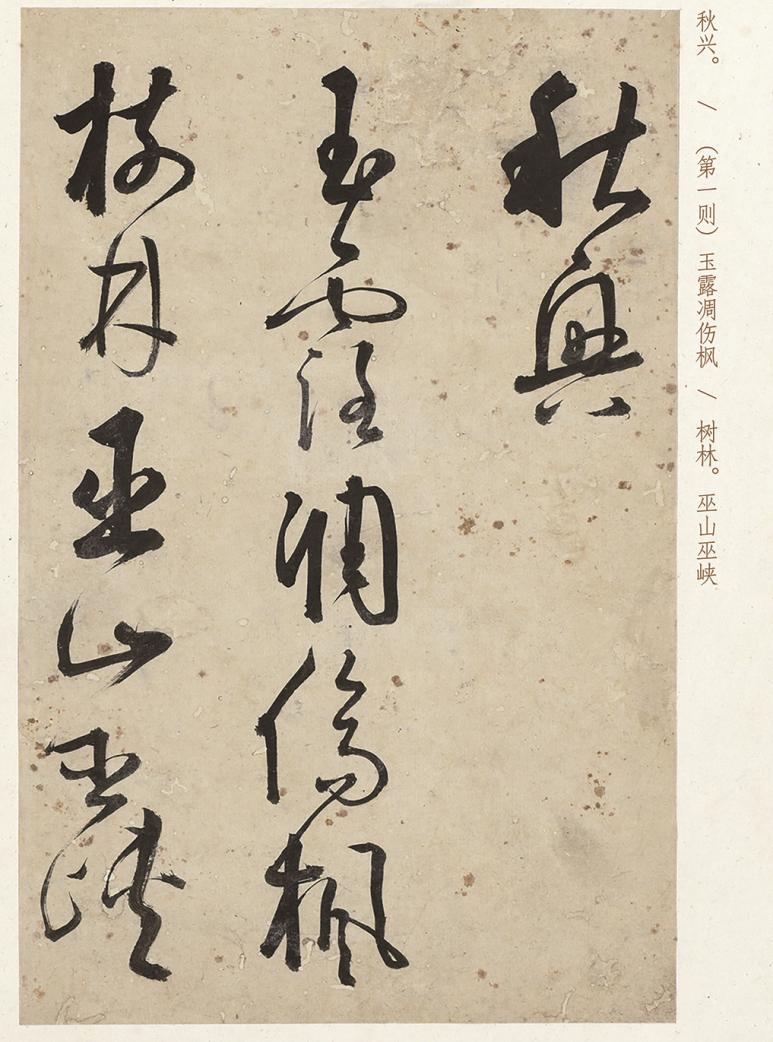 秋兴。 \ （第一则）玉露凋伤枫 \ 树林。巫山巫峡
秋興
玉露凋傷枫
树林巫山巫峡